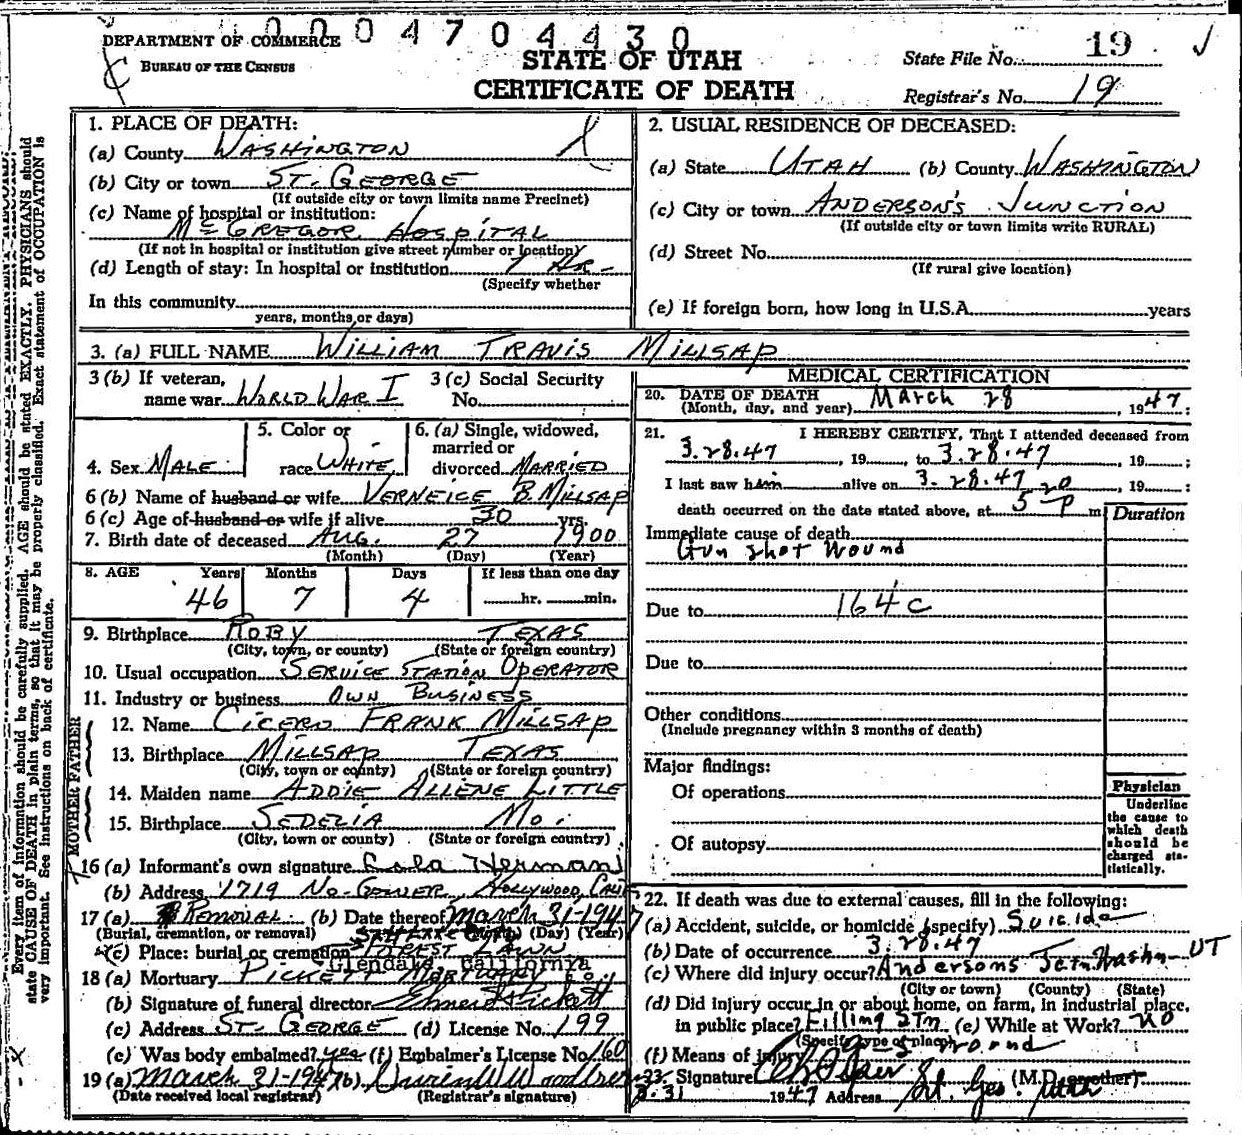 0004704430
DEPARTMENT OF COMMERCE
BUREAU OF THE CENSUS
STATE OF UTAH
CERTIFICATE OF DEATH
State File No. 19
Registrar's No. 19
Every item of information should be carefully supplied. AGE should be stated EXACTLY. PHYSICIANS should
state CAUSE OF DEATH in plain terms, so that it may be properly classified. Exact statement of OCCUPATION is
very important. See instructions on back of certificate.
1. PLACE OF DEATH:
(a) County WASHINGTON
(b) City or town ST. GEORGE
(If outside city or town limits name Precinct)
(c) Name of hospital or institution:
McGREGOR HOSPITAL
(If not in hospital or institution give street number or location)
(d) Length of stay: In hospital or institution 1 HR-
(Specify whether
In this community
years, months, or days)
2. USUAL RESIDENCE OF DECEASED:
(a) State UTAH (b) County WASHINGTON
(c) City or town ANDERSON'S JUNCTION
(If outside city or town limits write RURAL)
(d) Street No.
(If rural give location)
(e) If foreign born, how long in U.S.A. years
3. (a) FULL NAME WILLIAM TRAVIS MILLSAP
3 (b) If veteran, name war WORLD WAR I
3 (c) Social Security No.
4. Sex MALE
5. Color or race WHITE
6. (a) Single, widowed, married or divorced MARRIED
6 (b) Name of husband or wife VERNEICE B. MILLSAP
6 (c) Age of husband or wife if alive 30 yrs.
7. Birth date of deceased AUG. 27 1900
(Month) (Day) (Year)
8. AGE Years Months Days If less than one day
46 7 4 hr. min.
9. Birthplace ROBY TEXAS
(City, town, or county) (State or foreign country)
10. Usual occupation SERVICE STATION OPERATOR
11. Industry or business OWN BUSINESS
FATHER
12. Name CICERO FRANK MILLSAP
13. Birthplace MILLSAP TEXAS
(City, town or county) (State or foreign country)
MOTHER
14. Maiden name ADDIE ALLENE LITTLE
15. Birthplace SEDELIA MO.
(City, town or county) (State or foreign country)
16 (a) Informant's own signature Herman
(b) Address 1719 NO-GOWER, HOLLYWOOD, CALIF
17 (a) REMOVAL (b) Date thereof March 31-1947
(Burial, cremation, or removal) (Month) (Day) (Year)
(c) Place: burial or cremation FOREST LAWN
Glendale California
18 (a) Mortuary PICKETT MORTUARY
(b) Signature of funeral director Elmer Pickett
(c) Address ST. GEORGE (d) License No. 199
(e) Was body embalmed? yes (f) Embalmer's License No. 160
19 (a) March 31-1947 (b)
(Date received local registrar) (Registrar's signature)
MEDICAL CERTIFICATION
20. DATE OF DEATH
(Month, day, and year) March 28, 1947;
21. I HEREBY CERTIFY, That I attended deceased from
3.28.47, 19 to 3.28.47, 19 ;
I last saw him alive on 3.28.47, 19 ;
death occurred on the date stated above, at 5 20 P m
Duration
Immediate cause of death
Gun shot Wound
Due to 164c
Due to
Other conditions
(Include pregnancy within 3 months of death)
Major findings:
Of operations
Of autopsy
Physician
Underline
the cause to
which death
should be
charged sta-
tistically.
22. If death was due to external causes, fill in the following:
(a) Accident, suicide, or homicide (specify) Suicide
(b) Date of occurrence 3.28.47
(c) Where did injury occur? Andersons Jctn. Washn- UT
(City or town) (County) (State)
(d) Did injury occur in or about home, on farm, in industrial place,
in public place? Filling STn (e) While at Work? no
(Specify type of place)
(f) Means of injury wound
23. Signature (M.D. or other)
3.31 1947 Address St. Geo. Utah